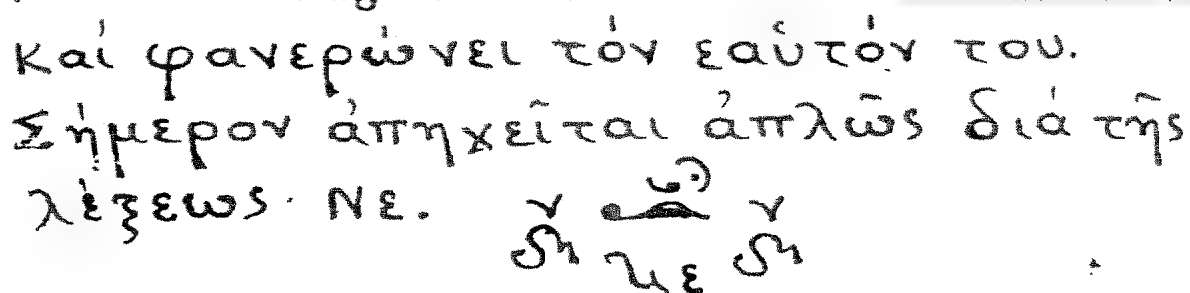 καί φανερώνει τόν ἑαὑτόν του.
Σήμερον ἀπηχεῖται ἀπλῶς διά τῆς
λέξεως· Νε.